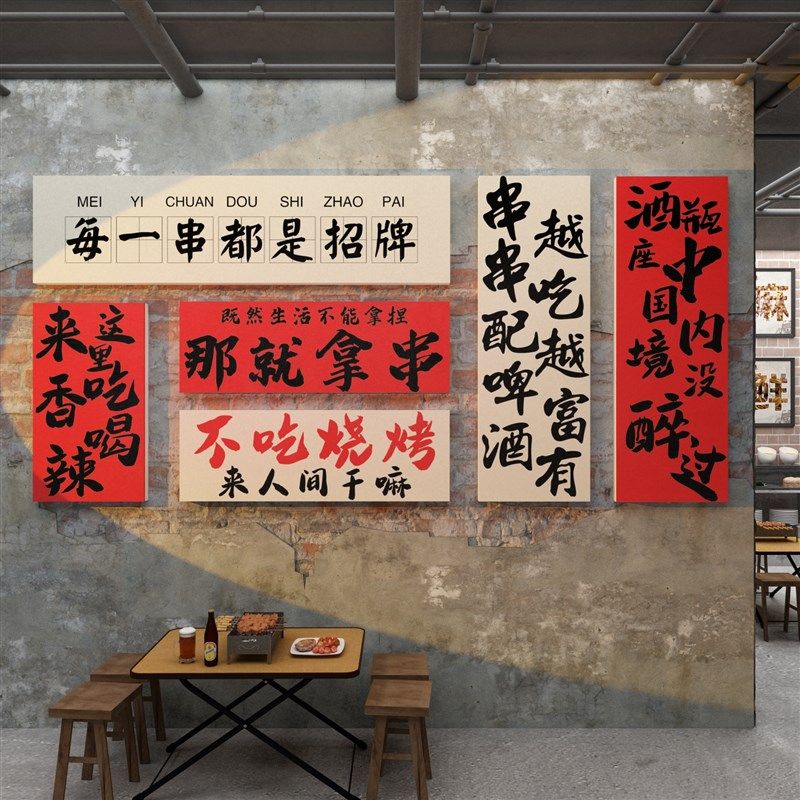 MEI YI CHUAN DOU SHI ZHAO PAI
每一串都是招牌
来这里
吃香
喝辣
既然生活不能拿捏
那就拿串
不吃烧烤
来人间干嘛
串串配啤酒
越吃越富有
酒瓶座
中国境内
没醉过